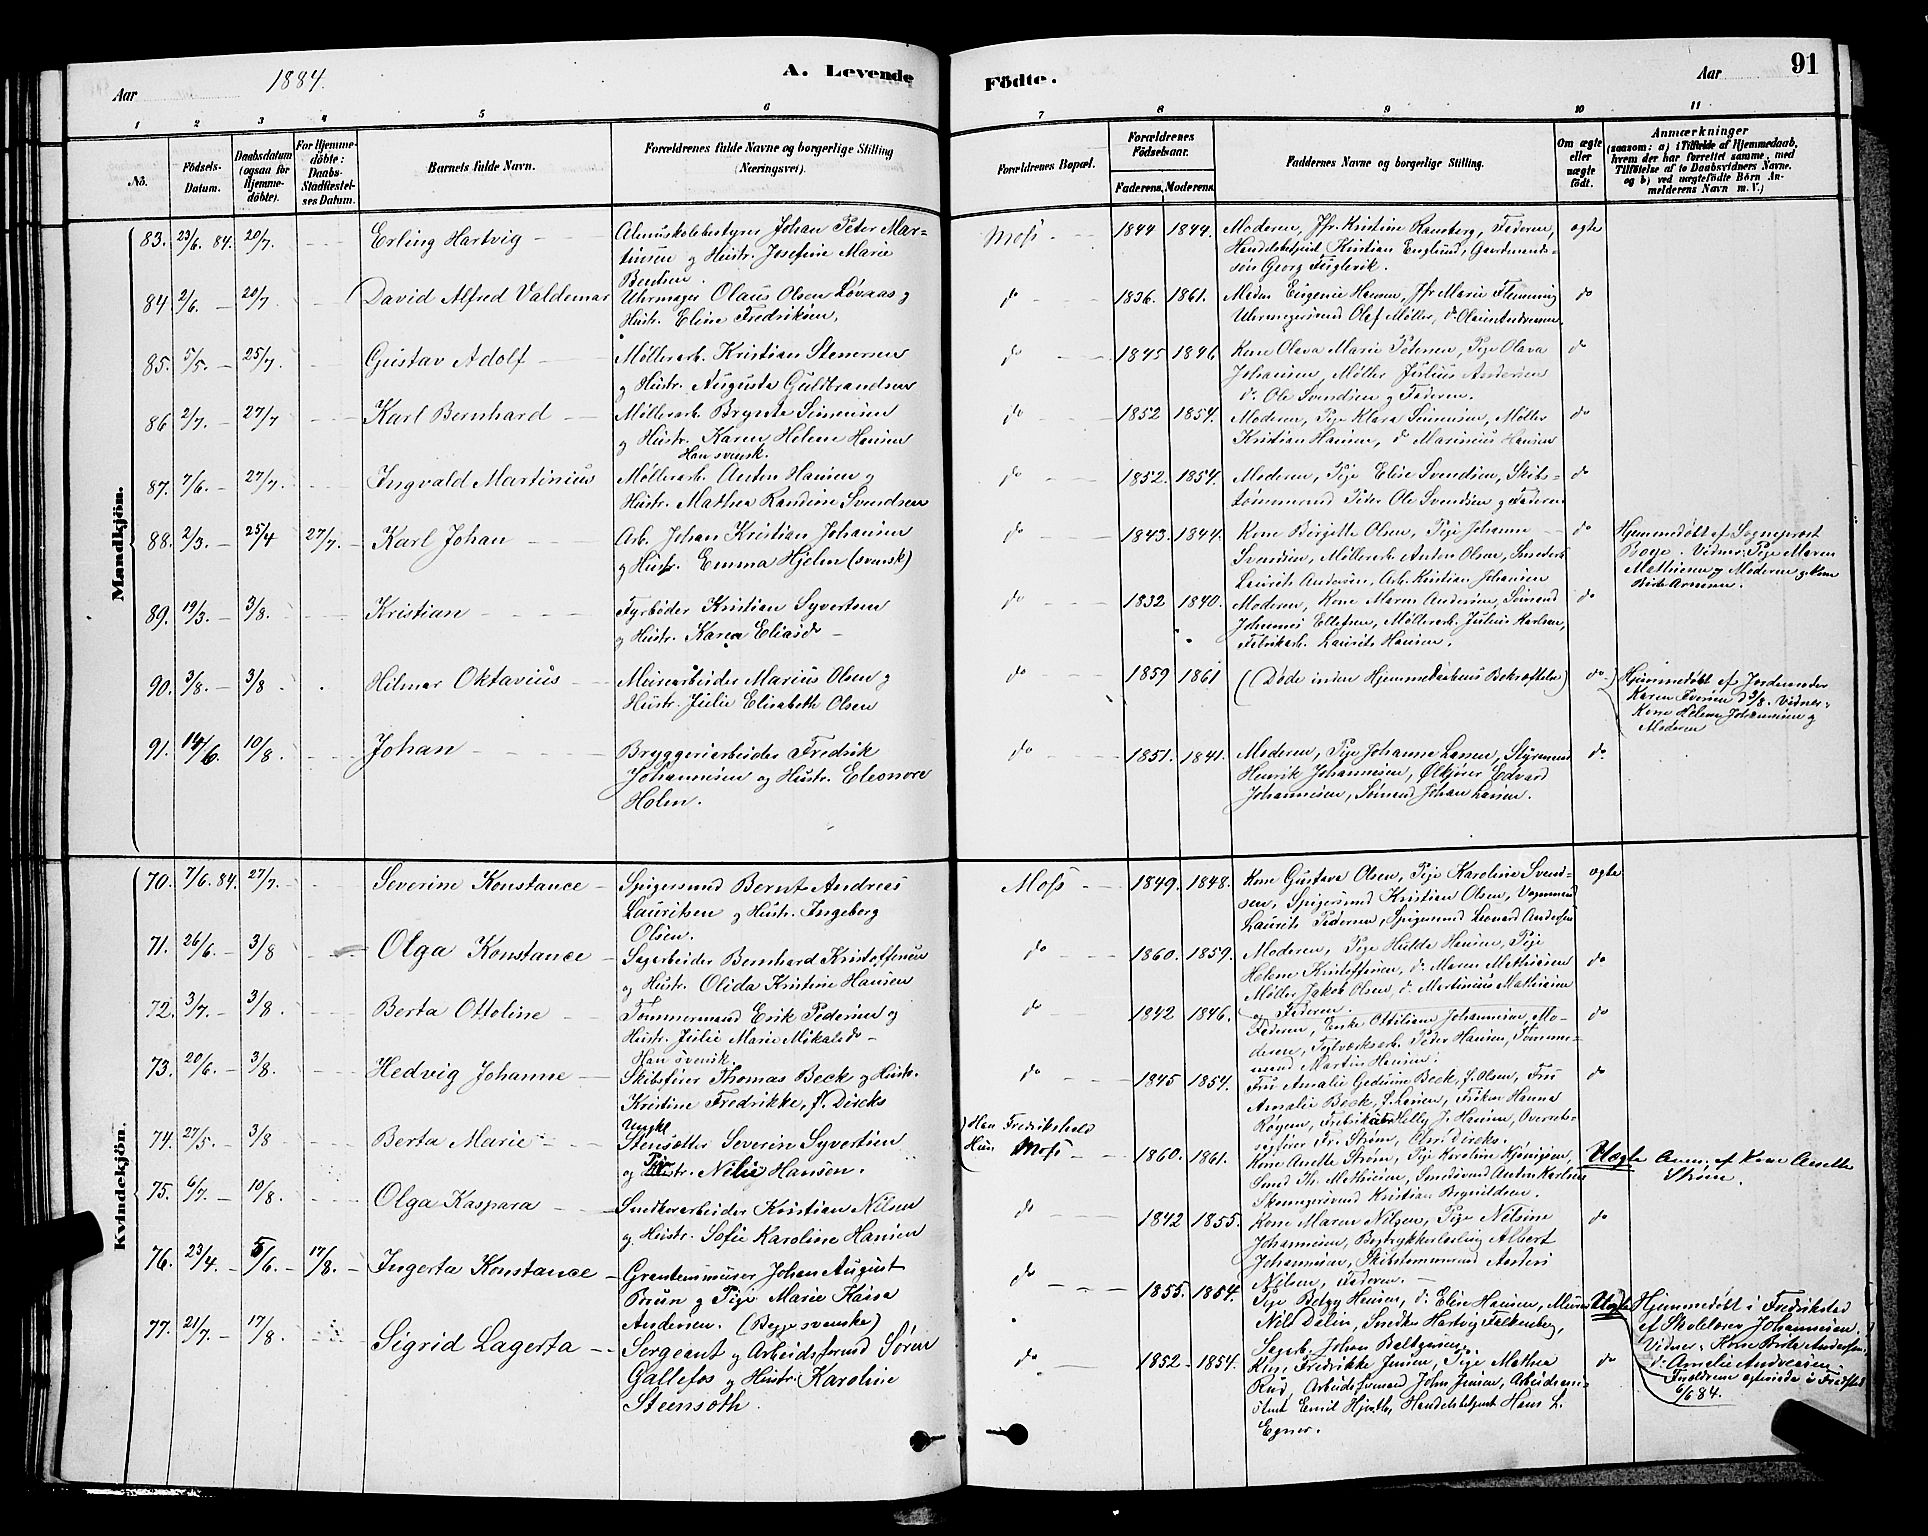 Aar 1884. A. Levende
Födte. Aar 91
1 2 3 4 5 6
7 8 9 10 11
No. Födsels-Datum. Daabsdatum (ogsaa for Hjemme-döbte). For Hjemme-döbte: Daabs-Stadfæstel-ses Datum. Barnets fulde Navn. Forældrenes fulde Navne og borgerlige Stilling (Næringsvei).
Forældrenes Bopæl. Forældrenes Födselsaar. Faderens. Moderens. Faddernes Navne og borgerlige Stilling. Om ægte eller uægte födt. Anmærkninger
(saasom: a) i Tilfælde af Hjemmedaab, hvem der har forrettet samme, med Tilföielse af to Daabsvidners Navne. og b) ved uægtefödte Börn An-melderens Navn m. V.)
Mandkjön.
83. 23/6. 84. 20/7. Erling Hartvig Almuskolebestyrer Johan Peter Mar-
tinsen og Hustr. Josefine Marie
Berntsen.
Moss 1844 1844. Moderen, Jfr. Kristine Ramberg, Faderen, ægte
Handelsbetjent Kristian Englund, Gaardmands-
søn Georg Fuglevik.
84 2/6. 20/7. David Alfred Valdemar Uhrmager Olaus Olsen Løvaas og
Hustr. Eline Fredriksen.
do 1836. 1861. Madm Eugenie Hansen, Jfr Marie Flemming do
Uhrmagersvend Olaf Møller, do Olaus Andresen.
85. 5/5. 25/7. Gustav Adolf Møllerarb. Kristian Stenersen
og Hustr. Augusta Guldbrandsen
do 1845 1846 Kone Olava Marie Petersen, Pige Olava do
Johansen, Møller Julius Andersen
do Ole Svendsen og Faderen.
86 2/7. 27/7 Karl Bernhard Møllerarb. Brynte Simensen
og Hustr. Karen Helene Hansen
Han svensk.
do 1852 1854. Moderen, Pige Klara Simensen, Møller do
Kristian Hansen, do Marinius Hansen
87. 7/6. 27/7. Ingvald Martinius Møllerarb. Anton Hansen og
Hustr. Mathea Randine Svendsen
do 1852. 1854. Moderen, Pige Elise Svendsen, Skibs- do
tømmermand Peder Ole Svendsen og Faderen
88. 2/3. 25/4 27/7. Karl Johan Arb. Johan Kristian Johansen
og Hustr. Emma Hjelm (svensk)
do 1843. 1844. Kone Birgitte Olsen, Pige Johanne do
Svendsen, Møllerarb. Anton Olsen, Smedarb.
Laurits Andersen, Arb. Kristian Johansen
Hjemmedøbt af Sogneprest
Boye. Vidner: Pige Maren
Mathisen og Moderen og Kone
Birte Arnesen.
89. 19/3. 3/8. Kristian Fyrbøder Kristian Syvertsen
og Hustr. Karen Eliasd
do 1832 1840. Moderen, Kone Maren Andersen, Sømand do
Johannes Ellefsen, Møllerarb. Julius Karlsen,
Fabrikarb. Laurits Hansen.
90. 3/8. 3/8. Hilmar Oktavius Murearbeider Marius Olsen og
Hustr. Julie Elisabeth Olsen
do 1859 1861 (Døde inden Hjemmedaabens Bekræftelse) do
Hjemmedøbt af Jordemoder
Karen Iversen d 3/8. Vidner:
Kone Helene Johannesen og
Moderen
91. 14/6. 10/8. Johan Bryggeriarbeider Fredrik
Johannesen og Hustr. Eleonore
Holm.
do 1851. 1841. Moderen, Pige Johanne Larsen, Styrmand do
Henrik Johannesen, Ølkjører Edvard
Johannesen, Sømand Johan Larsen.
Kvindekjön.
70. 7/6. 84. 27/7. Severine Konstance Spigersmed Bernt Andreas
Lauritsen og Hustr. Ingeborg
Olsen.
Moss 1849. 1848. Kone Gustava Olsen, Pige Karoline Svend- ægte
sen, Spigersmed Kristian Olsen, Vognmand
Laurits Pedersen, Spigersmed Leonard Andersen
71. 26/6. 3/8 Olga Konstance Sagarbeider Bernhard Kristoffersen
og Hustr. Olida Kristine Hansen
do 1860. 1859. Moderen, Pige Hulda Hansen, Pige do
Helene Kristoffersen, do Maren Mathiesen
Møller Jakob Olsen, do Martinius Mathisen
og Faderen.
72. 3/7. 3/8. Berta Ottoline Tømmermand Erik Pedersen og
Hustr. Julie Marie Mikalsd
Han svensk.
do 1842 1846. Faderen, Enke Ottiliane Johannesen, Mo- do
deren, Teglværksarb. Peter Hansen, Tømmer-
mand Martin Hansen.
73. 20/6. 3/8. Hedvig Johanne Skibsfører Thomas Beck og Hustr.
Kristine Fredrikke, f. Direks
do 1845 1854. Fru Amalie Gedurine Beck, f. Olsen, Fru do
Amalie Beck, f. Larsen, Frøken Hanna
Røyem, Fabrikeier Helly J. Hansen,
Fr. Strøm, Chr. Direks.
74. 27/5. 3/8. Berta Marie Ungkl
Stensætter Severin Syvertsen
og Pige Nilie Hansen.
Han Fredrikshald
Hun Moss 1860. 1861. Kone Anette Strøm, Pige Karoline Uægte Anm. af Kone Anette
Smed Th. Mathisen, Smedsvend Anton Karlsen Strøm.
Skomagersvend Kristian Brynildsen.
75. 6/7. 10/8. Olga Kaspara Snedkerarbeider Kristian Nilsen
og Hustr. Sofie Karoline Hansen
do 1842 1855. Kone Maren Nilsen, Pige Nilsine do
Johannesen, Bogtrykkerlærling Albert
Johannesen, Skibstømmermand Anders
Nilsen, Faderen.
76. 23/4. 5/6. 17/8. Ingerta Konstance Grentemmurer Johan August
Bruun og Pige Marie Kaisa
Andersen. (Begge svenske)
do 1855. 1854. Pige Betzy Hansen, do Elise Hansen, Murer Uægte
Nils Delin, Snedker Hartvig Falkenberg,
Sagarb. Johan Baltzersen.
Hjemmedøbt i Fredrikstad
af Skolelærer Johannesen.
Vidner: Kone Birte Andersen,
do Amalie Andreasen.
Forældrene ægteviede i Fredrstad
6/6 84.
77. 21/7. 17/8. Sigrid Lagerta Sergeant og Arbeidsformd Søren
Gallefos og Hustr. Karoline
Steensoth.
do 1852 1854. Kone Fredrikke Jensen, Pige Mathea do
Rud, Arbeidsformand John Jensen, Arbeidsman
Emil Hjorth, Handelsbetjent Hans L.
Egner.